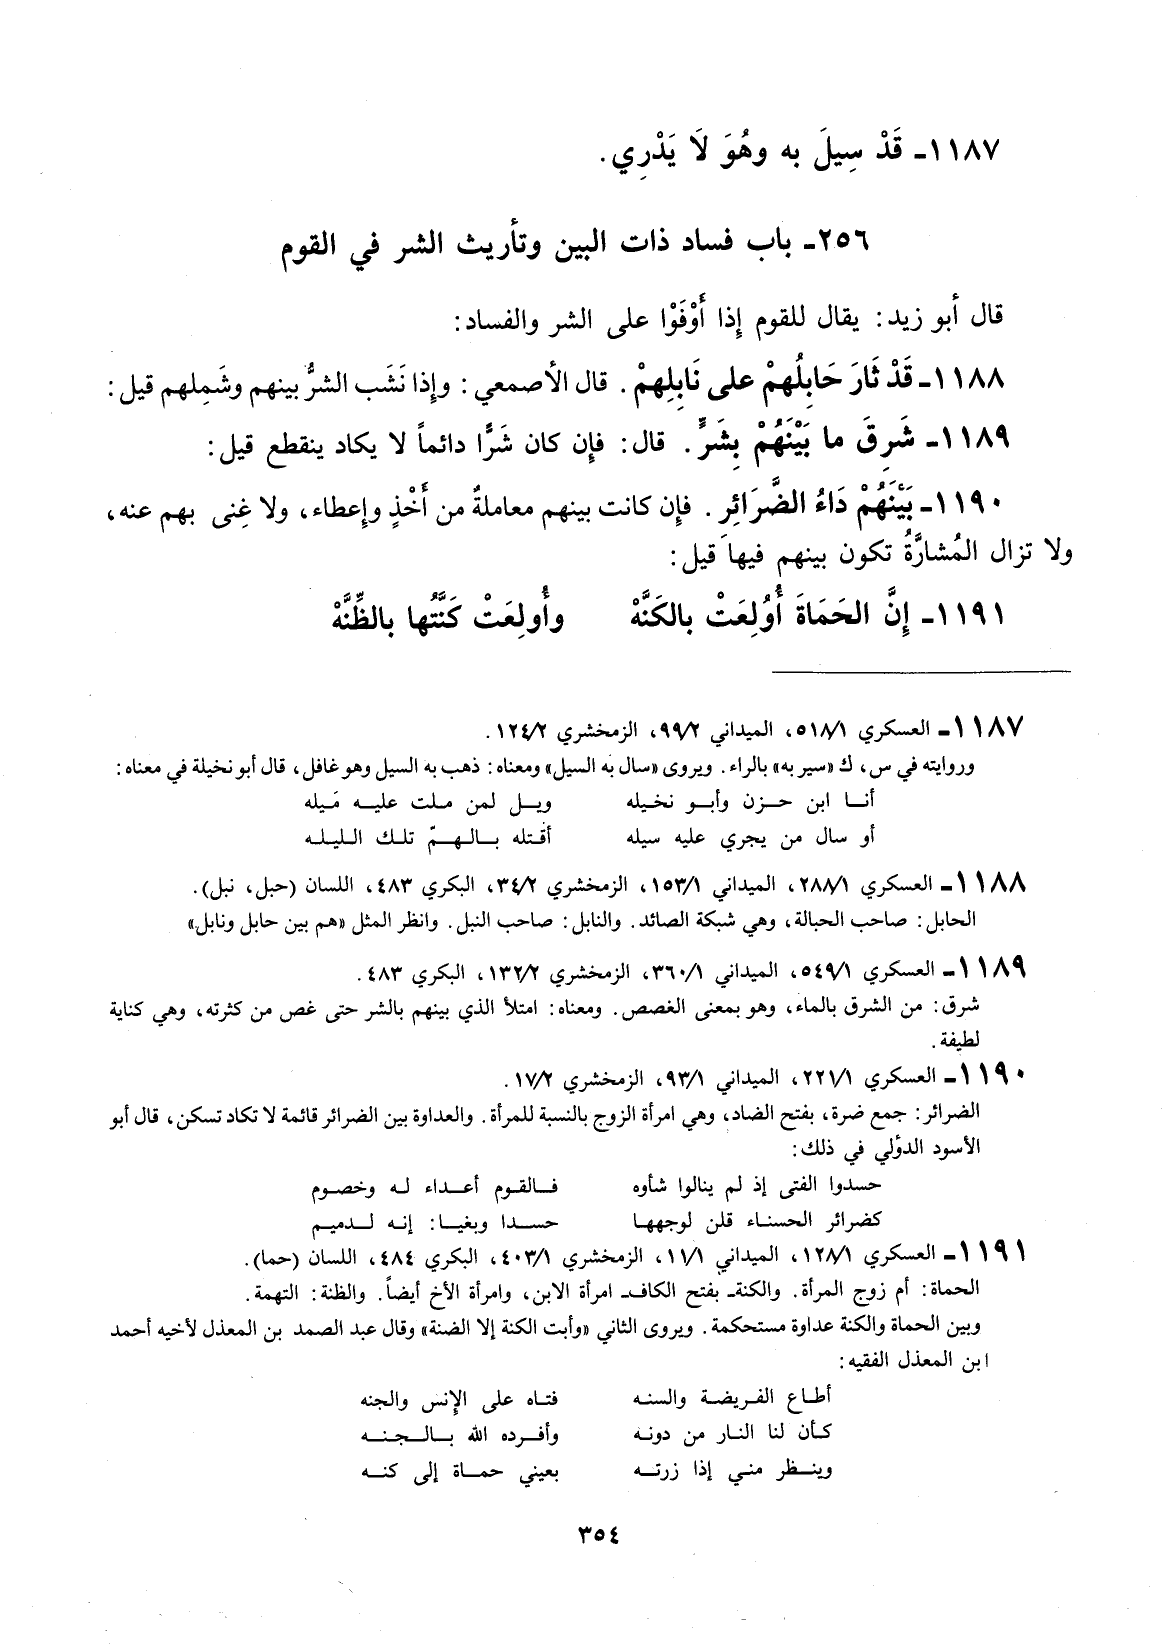 ١١٨٧ـ قَدْ سِيلَ به وهُوَ لَا يَدْرِي.
٢٥٦ـ باب فساد ذات البين وتأريث الشر في القوم
قال أبو زيد: يقال للقوم إذا أَوْفَوْا على الشر والفساد:
١١٨٨ـ قَدْ ثَارَ حَابِلُهمْ على نَابِلِهمْ. قال الأصمعي: وإذا نَشَب الشرُّ بينهم وشَمِلهم قيل:
١١٨٩ـ شَرِقَ ما بَيْنَهُمْ بِشَرٍّ. قال: فإن كان شَرًّا دائماً لا يكاد ينقطع قيل:
١١٩٠ـ بَيْنَهُمْ دَاءُ الضَّرَائِرِ. فإن كانت بينهم معاملةٌ من أَخْذٍ وإعطاء، ولا غِنى بهم عنه،
ولا تزال المُشارَّةُ تكون بينهم فيها قيل:
١١٩١ـ إِنَّ الحَمَاةَ أُوْلِعَتْ بالكَنَّهْ وأُولِعَتْ كَنَّتُها بالظِّنَّهْ
١١٨٧ـ العسكري ٥١٨/١، الميداني ٩٩/٢، الزمخشري ١٢٤/٢.
وروايته في س، ك «سير به» بالراء. ويروى «سال به السيل» ومعناه: ذهب به السيل وهو غافل، قال أبو نخيلة في معناه:
أنا ابن حزن وأبو نخيله ويل لمن ملت عليه مَيله
أو سال من يجري عليه سيله أقتله بالهمّ تلك الليله
١١٨٨ـ العسكري ٢٨٨/١، الميداني ١٥٣/١، الزمخشري ٣٤/٢، البكري ٤٨٣، اللسان (حبل، نبل).
الحابل: صاحب الحبالة، وهي شبكة الصائد. والنابل: صاحب النبل. وانظر المثل «هم بين حابل ونابل»
١١٨٩ـ العسكري ٥٤٩/١، الميداني ٣٦٠/١، الزمخشري ١٣٢/٢، البكري ٤٨٣.
شرق: من الشرق بالماء، وهو بمعنى الغصص. ومعناه: امتلأ الذي بينهم بالشر حتى غص من كثرته، وهي كناية
لطيفة.
١١٩٠ـ العسكري ٢٢١/١، الميداني ٩٣/١، الزمخشري ١٧/٢.
الضرائر: جمع ضرة، بفتح الضاد، وهي امرأة الزوج بالنسبة للمرأة. والعداوة بين الضرائر قائمة لا تكاد تسكن، قال أبو
الأسود الدؤلي في ذلك:
حسدوا الفتى إذ لم ينالوا شأوه فالقوم أعداء له وخصوم
كضرائر الحسناء قلن لوجهها حسدا وبغيا: إنه لدميم
١١٩١ـ العسكري ١٢٨/١، الميداني ١١/١، الزمخشري ٤٠٣/١، البكري ٤٨٤، اللسان (حما).
الحماة: أم زوج المرأة. والكنةـ بفتح الكافـ امرأة الابن، وامرأة الأخ أيضاً. والظنة: التهمة.
وبين الحماة والكنة عداوة مستحكمة. ويروى الثاني «وأبت الكنة إلا الضنة» وقال عبد الصمد بن المعذل لأخيه أحمد
ابن المعذل الفقيه:
أطاع الفريضة والسنه فتاه على الإنس والجنه
كأن لنا النار من دونه وأفرده الله بالجنه
وينظر مني إذا زرته بعيني حماة إلى كنه
٣٥٤